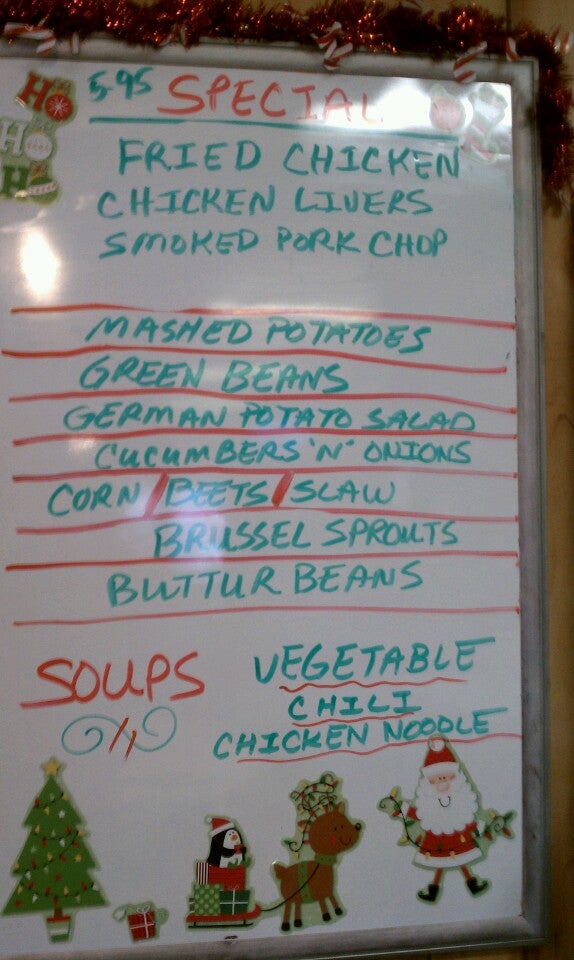 HO
HO
HO
5.95 SPECIAL
FRIED CHICKEN
CHICKEN LIVERS
SMOKED PORK CHOP
MASHED POTATOES
GREEN BEANS
GERMAN POTATO SALAD
CUCUMBERS 'N' ONIONS
CORN / BEETS / SLAW
BRUSSEL SPROUTS
BUTTUR BEANS
SOUPS
VEGETABLE
CHILI
CHICKEN NOODLE